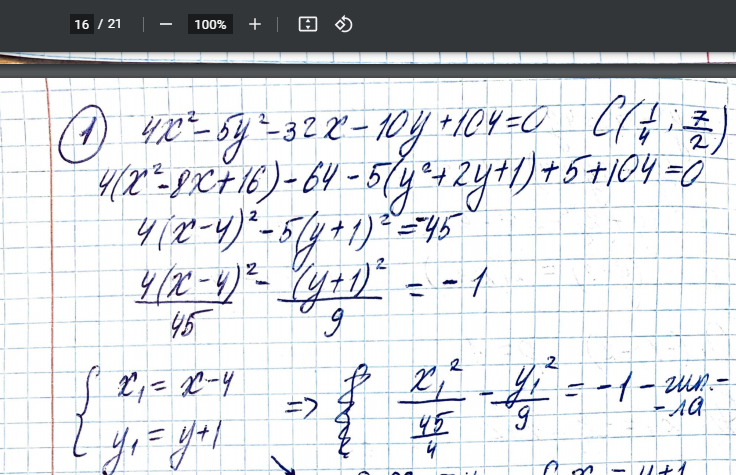 16 / 21 100%
① 4x² - 5y² - 32x - 10y + 104 = 0 C(1/4; 7/2)
4(x² - 8x + 16) - 64 - 5(y² + 2y + 1) + 5 + 104 = 0
4(x-4)² - 5(y+1)² = -45
4(x-4)²/45 - (y+1)²/9 = -1
{ x₁ = x-4
y₁ = y+1 => { x₁²/(45/4) - y₁²/9 = -1 - гип.-
-ла